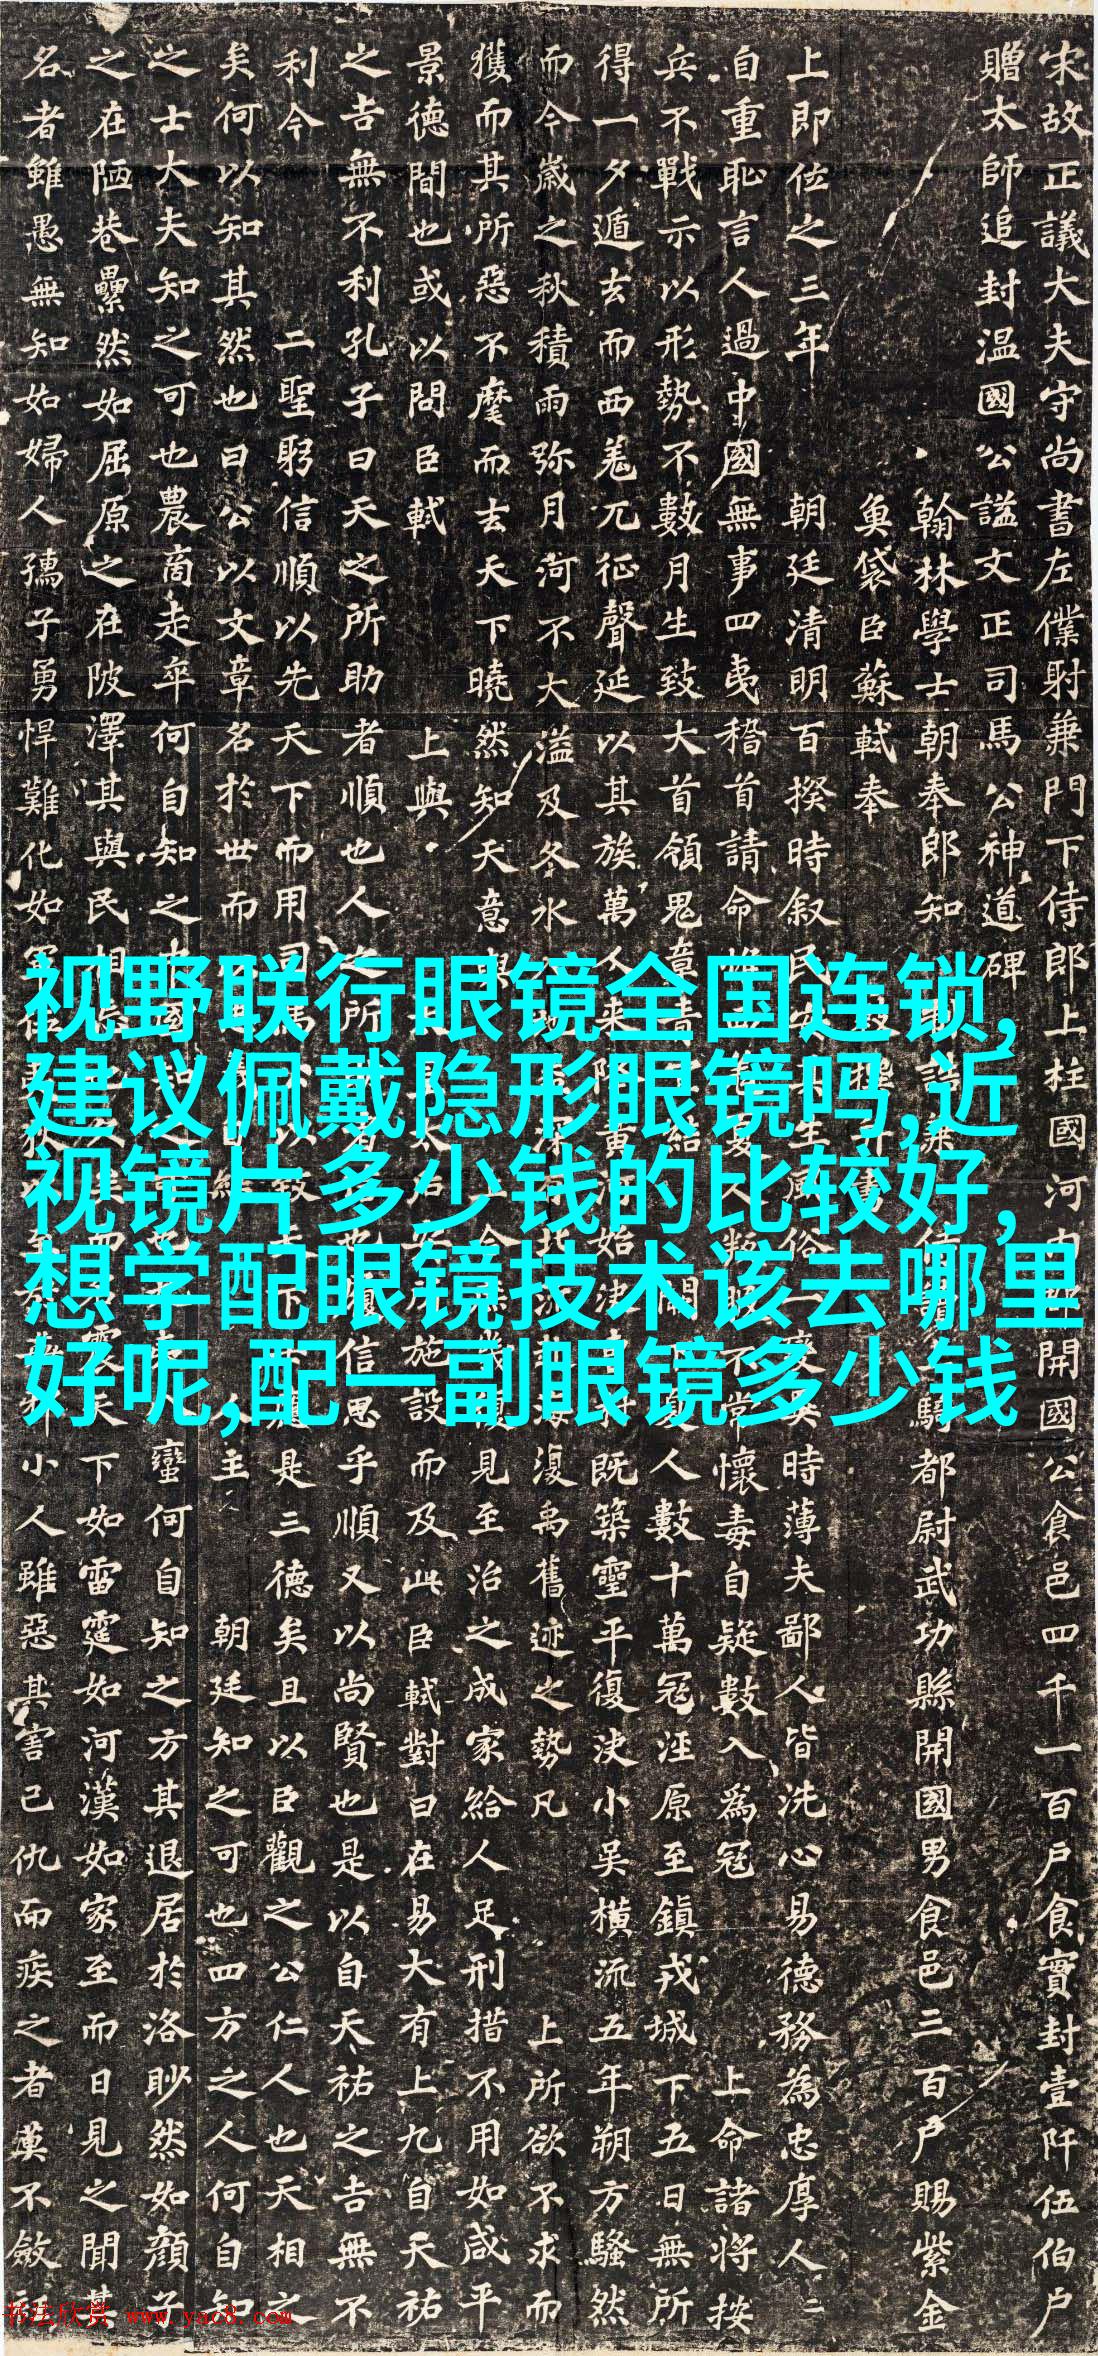 宋故正議大夫守尚書左僕射兼門下侍郎上柱國河內郡開國公食邑四千一百戶食實封壹阡伍伯戶
贈太師追封温國公謚文正司馬公神道碑
翰林學士朝奉郎知 騎都尉武功縣開國男食邑三百戶賜紫金
魚袋臣蘇軾奉
上即位之三年 朝廷清明百揆時叙民 時薄夫鄙人皆洗心易德務為忠厚人人
自重恥言人過中國無事四夷稽首請命 不常懷毒自疑數入為寇 上命諸將按
兵不戰示以形勢不數月生致大首領鬼章青 人數十萬寇涇原至鎮戎城下五日無所
得一夕遁去而西羌兀征聲延以其族萬人來降黃河始 既築靈平復決小吳橫流五年朔方騷然
而今歲之秋積雨弥月河不大溢及冬水 復禹舊迹之勢凡 上所欲不求而
獲而其所惡不麾而去天下曉然知天意 見至治之成家給人足刑措不用如咸平
景德間也或以問臣軾 上與 施設而及此臣軾對曰在易大有上九自天祐
之吉無不利孔子曰天之所助者順也人之所 信思乎順又以尚賢也是以自天祐之吉無不
利今 二聖躬信順以先天下而用 是三德矣且以臣觀之公仁人也天相之
矣何以知其然也曰公以文章名於世而 主 朝廷知之可也四方之人何自知
之士大夫知之可也農商走卒何自知之中國 蠻何自知之方其退居於洛眇然如顏子
之在陋巷纍然如屈原之在陂澤其與民相 天下如雷霆如河漢如家至而日見之聞其
名者雖愚無知如婦人孺子勇悍難化如軍伍 小人雖惡其害己仇而疾之者莫不斂
视野联行眼镜全国连锁,
建议佩戴隐形眼镜吗,近
视镜片多少钱的比较好,
想学配眼镜技术该去哪里
好呢,配一副眼镜多少钱
书法欣赏 www.yac8.com